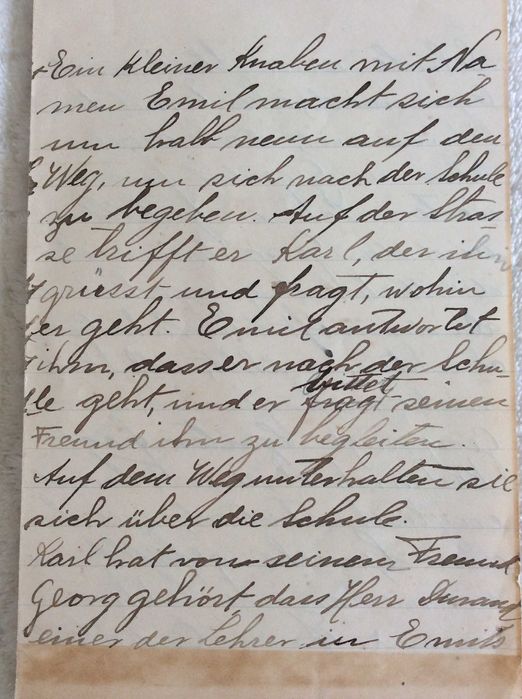 Ein kleiner Knaben mit Na
men Emil macht sich
um halb neun auf den
Weg, um sich nach der Schule
zu begeben. Auf der Stras
se trifft er Karl, der ihn
grüsst und fragt, wohin
er geht. Emil antwortet
ihm, dass er nach der Schu-
le geht, und er fragt seinen
bittet
Freund ihm zu begleiten.
Auf dem Weg unterhalten sie
sich über die Schule.
Karl hat von seinem Freund
Georg gehört dass Herr Durand
einer der Lehrer in Emils